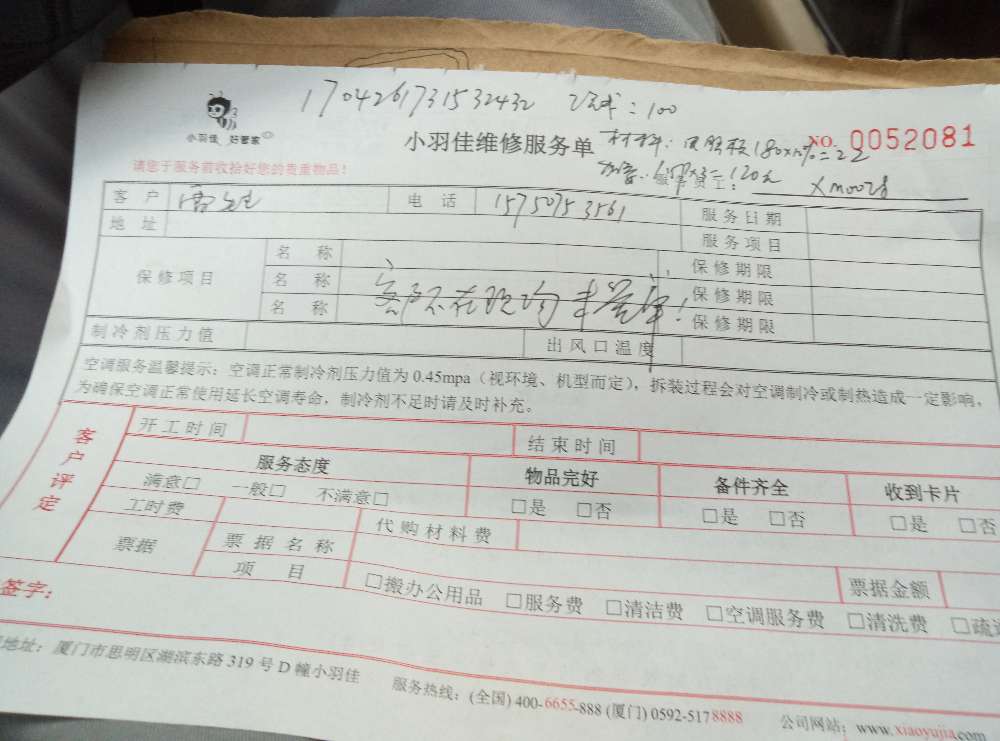 1704261731532432 =100
小羽佳 好管家
小羽佳维修服务单
材料: 180x =22
NO. 0052081
请您于服务前收拾好您的贵重物品!
服务员工: xm0028
x3=120元
客户 电话 15750753561 服务日期
地址 服务项目
保修项目 名称 保修期限
名称 客户不在现场 保修期限
名称 保修期限
制冷剂压力值 出风口温度
空调服务温馨提示:空调正常制冷剂压力值为 0.45mpa(视环境、机型而定),拆装过程会对空调制冷或制热造成一定影响,
为确保空调正常使用延长空调寿命,制冷剂不足时请及时补充。
客户评定
开工时间 结束时间
服务态度 物品完好 备件齐全 收到卡片
满意□ 一般□ 不满意□ □是 □否 □是 □否 □是 □否
工时费 代购材料费
票据 票据名称 票据金额
项目 □搬办公用品 □服务费 □清洁费 □空调服务费 □清洗费 □疏
签字:
地址:厦门市思明区湖滨东路 319 号 D 幢小羽佳
服务热线:(全国) 400-6655-888 (厦门) 0592-5178888
公司网站:www.xiaoyujia.com